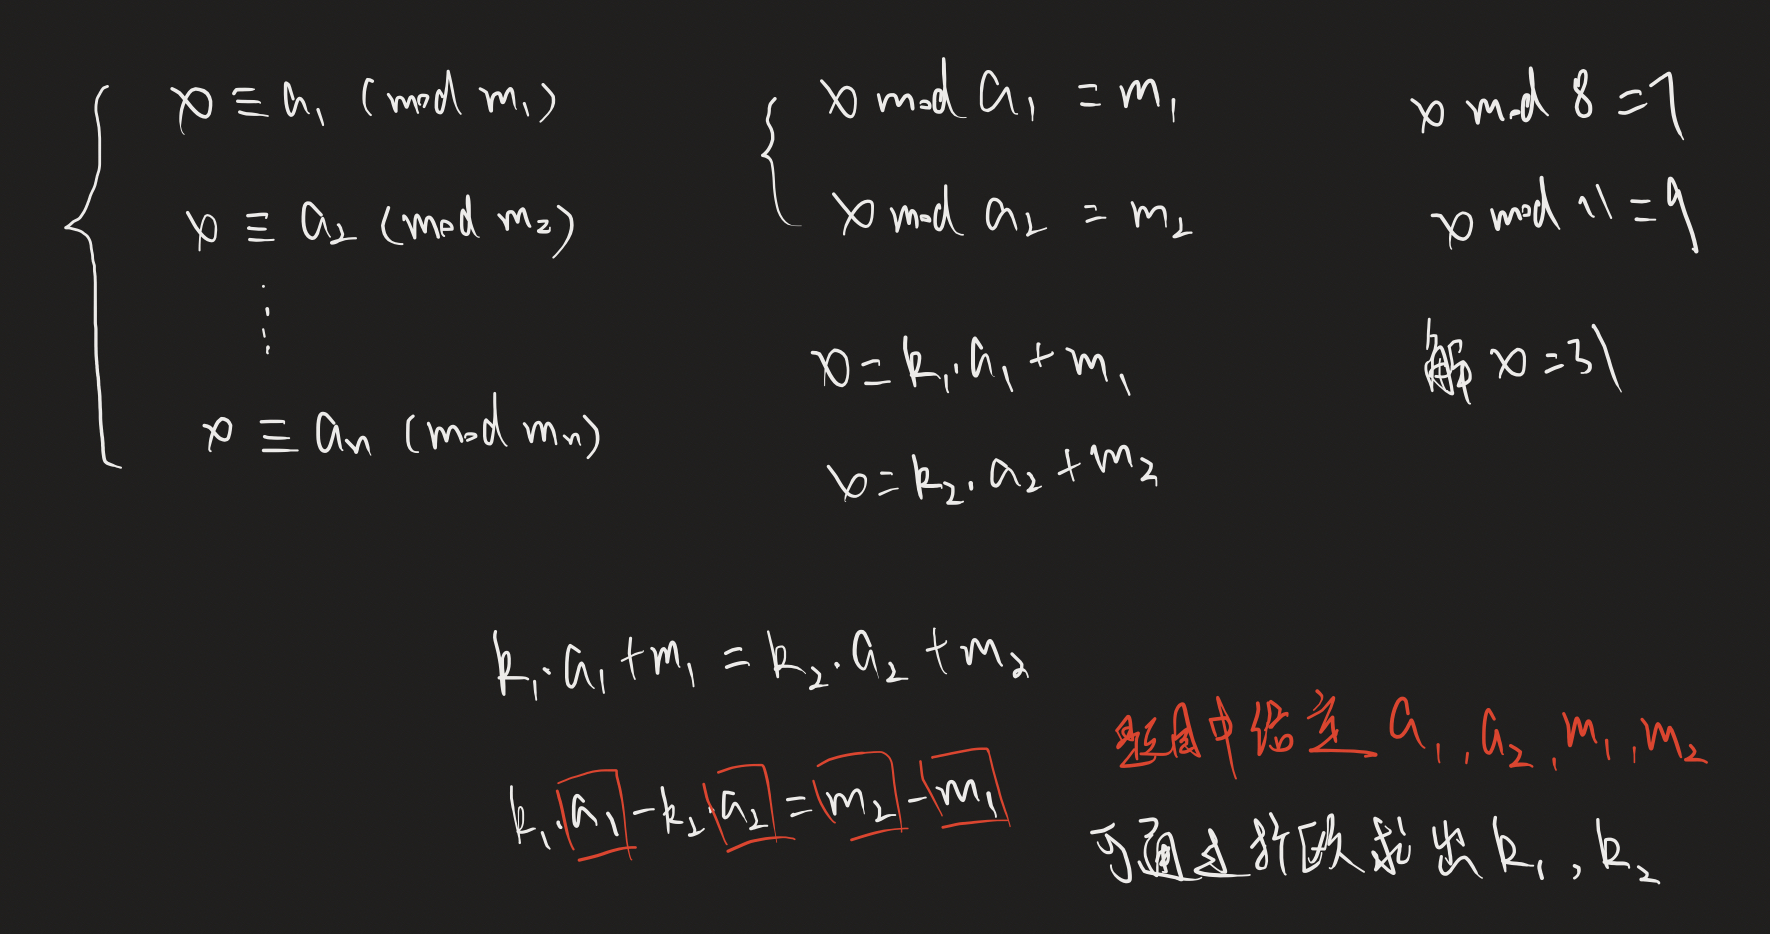 x ≡ a₁ (mod m₁)
x ≡ a₂ (mod m₂)
⋮
x ≡ aₙ (mod mₙ)
x mod a₁ = m₁
x mod a₂ = m₂
x = k₁·a₁ + m₁
x = k₂·a₂ + m₂
x mod 8 = 7
x mod 11 = 9
解 x = 31
k₁·a₁ + m₁ = k₂·a₂ + m₂
k₁·a₁ - k₂·a₂ = m₂ - m₁
题目中给定 a₁, a₂, m₁, m₂
可通过扩欧求出 k₁, k₂